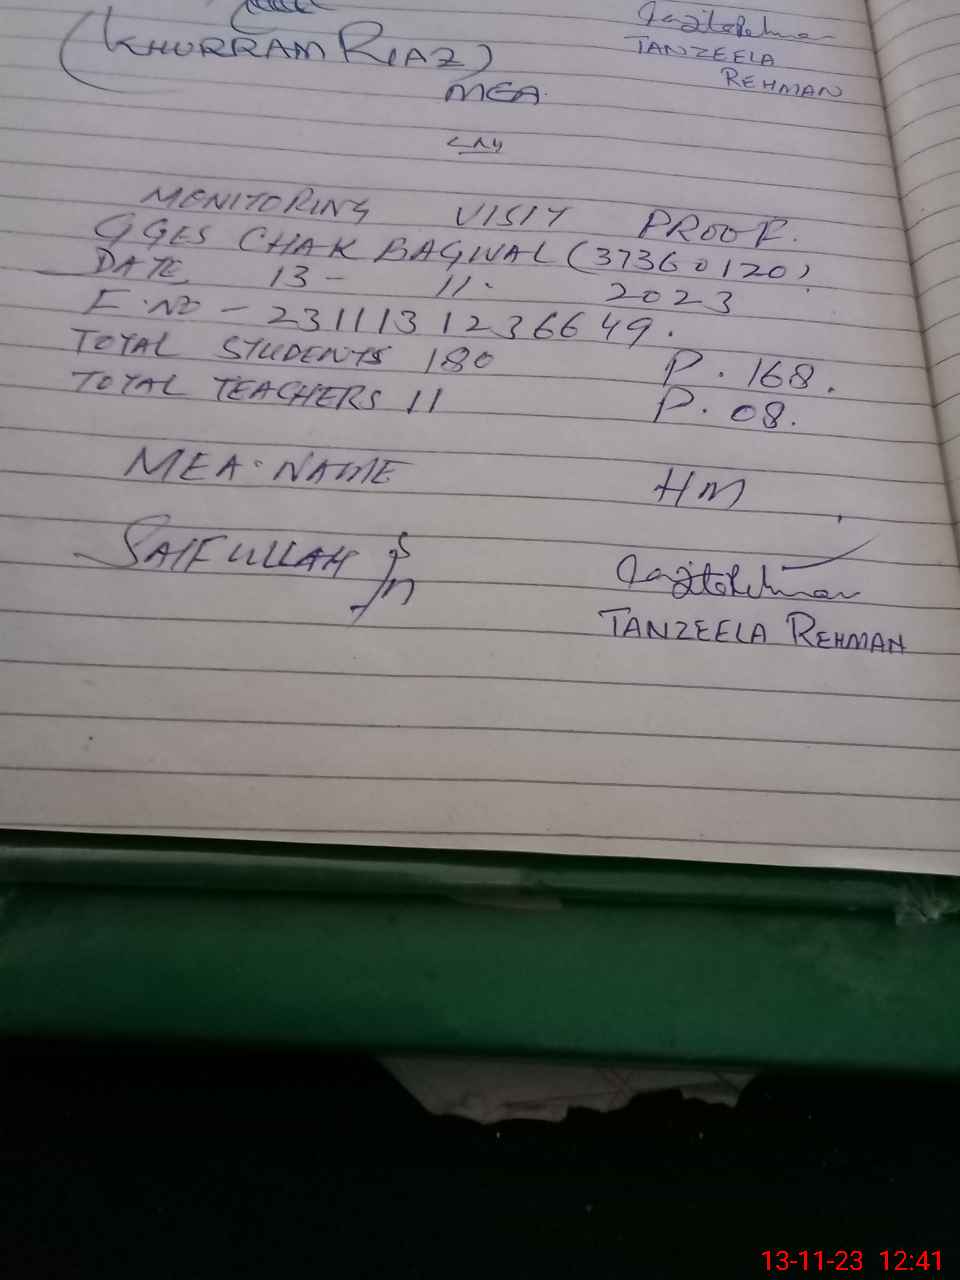 (KHURRAM RIAZ)
MEA.
TANZEELA
REHMAN
MONITORING VISIT PROOF.
GGES CHAK BAGWAL (37360120)
DATE 13- 11- 2023
F.NO - 231113 1236649.
TOTAL STUDENTS 180 P. 168.
TOTAL TEACHERS 11 P. 08.
MEA. NAME HM
SAIFULLAH
TANZEELA REHMAN
13-11-23 12:41